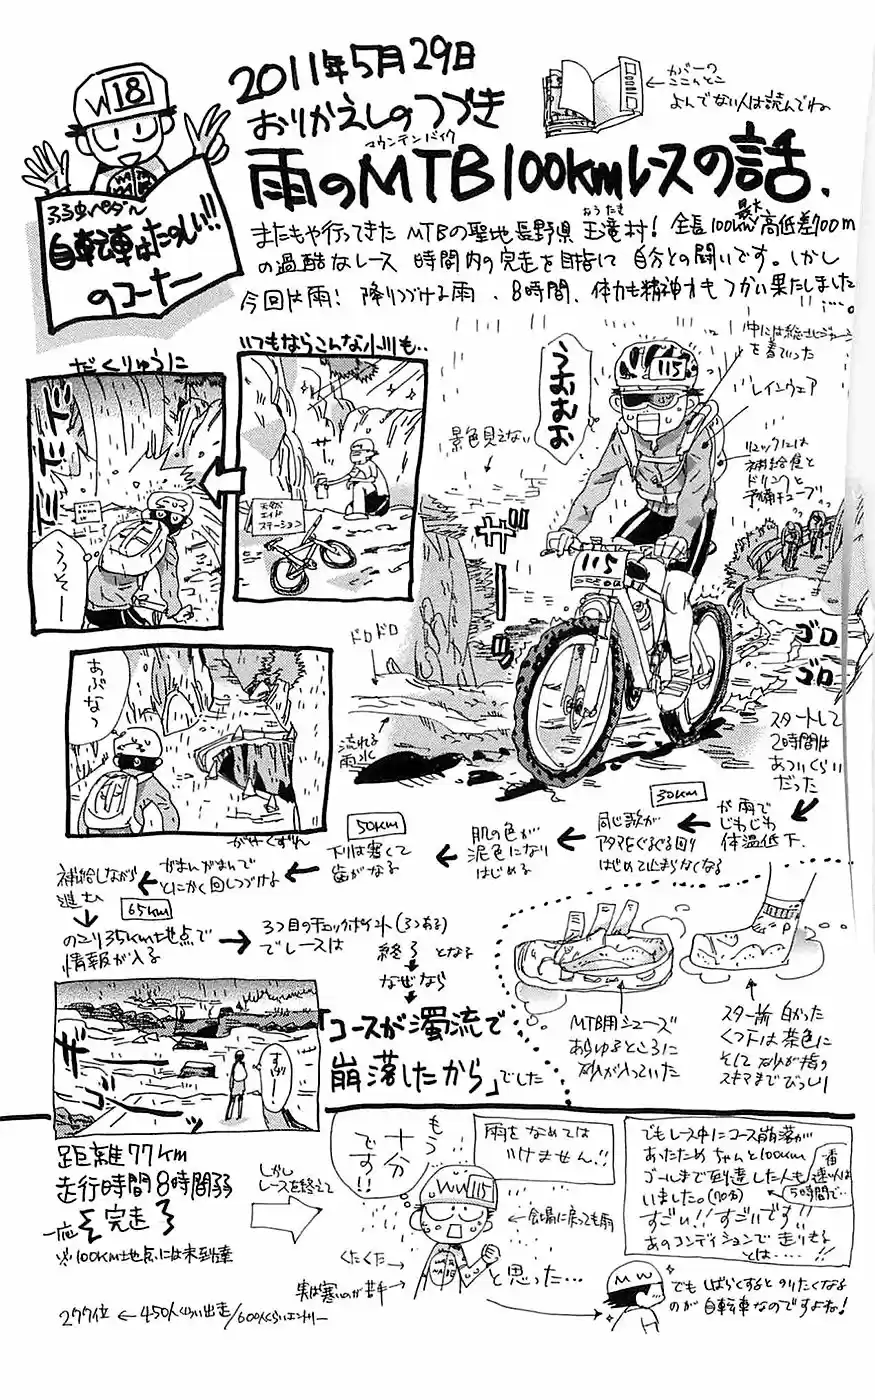 W 18
弱虫ペダル
自転車はたのしい!!
のコーナー
2011年5月29日
おりかえしのつづき
マウンテンバイク
雨のMTB100kmレースの話、
カバーの
ここんとこ
よんでない人は読んでね
またもや行ってきた MTBの聖地長野県 王滝村! 全長100km 最大高低差700m
おうたき
の過酷なレース 時間内の完走を目指して 自分との闘いです。しかし
今回は雨! 降りつづける雨、8時間、体力も精神力もつかい果たしました…。
だくりゅうに
ドドドド
うろそー
いつもならこんな小川も..
天然
エイド
ステーション
あぶなっ
がけくずれ
うおむお
115
景色見えない
ザザ
115
レインウェア
リュックには
補給食と
ドリンクと
予備チューブ
ゴロゴロ
ドロドロ
流れる
雨水
スタートして
2時間は
あついくらい
だった
が雨で
じわじわ
体温低下.
30km
同じ歌が
アタマをぐるぐる回り
はじめて止まらなくなる
肌の色が
泥色になり
はじめる
50km
下りは寒くて
歯がなる
がまんがまんで
とにかく回しつづける
補給しながら
進む
65km
のこり35km地点で
情報が入る
3つ目のチェックポイント(3つある)
でレースは 終了 となる
なぜなら
「コースが濁流で
崩落したから」でした
MTB用シューズ
あらゆるところに
砂が入っていた
スタート前 白かった
くつ下は茶色に
そして 砂が指の
スキマまでびっしり
距離77km
走行時間8時間弱
一応 完走
※100km地点には未到達
277位 ← 450人くらい出走/600人くらいエントリー
しかし
レースを終えて
もう
十分
です!!
雨をなめては
いけません!!
WW 115
会場に戻っても雨
くたくた
実は寒いのが苦手
と思った…
でもレース中にコース崩落が
あったため ちゃんと100km
ゴールまで到達した人も
いました。(70分)
一番
速い人は
5時間で…
すごい!! すごいです!!
あのコンディションで走りきる
とは……!!
MW
でも しばらくすると のりたくなる
のが 自転車なのですよね!